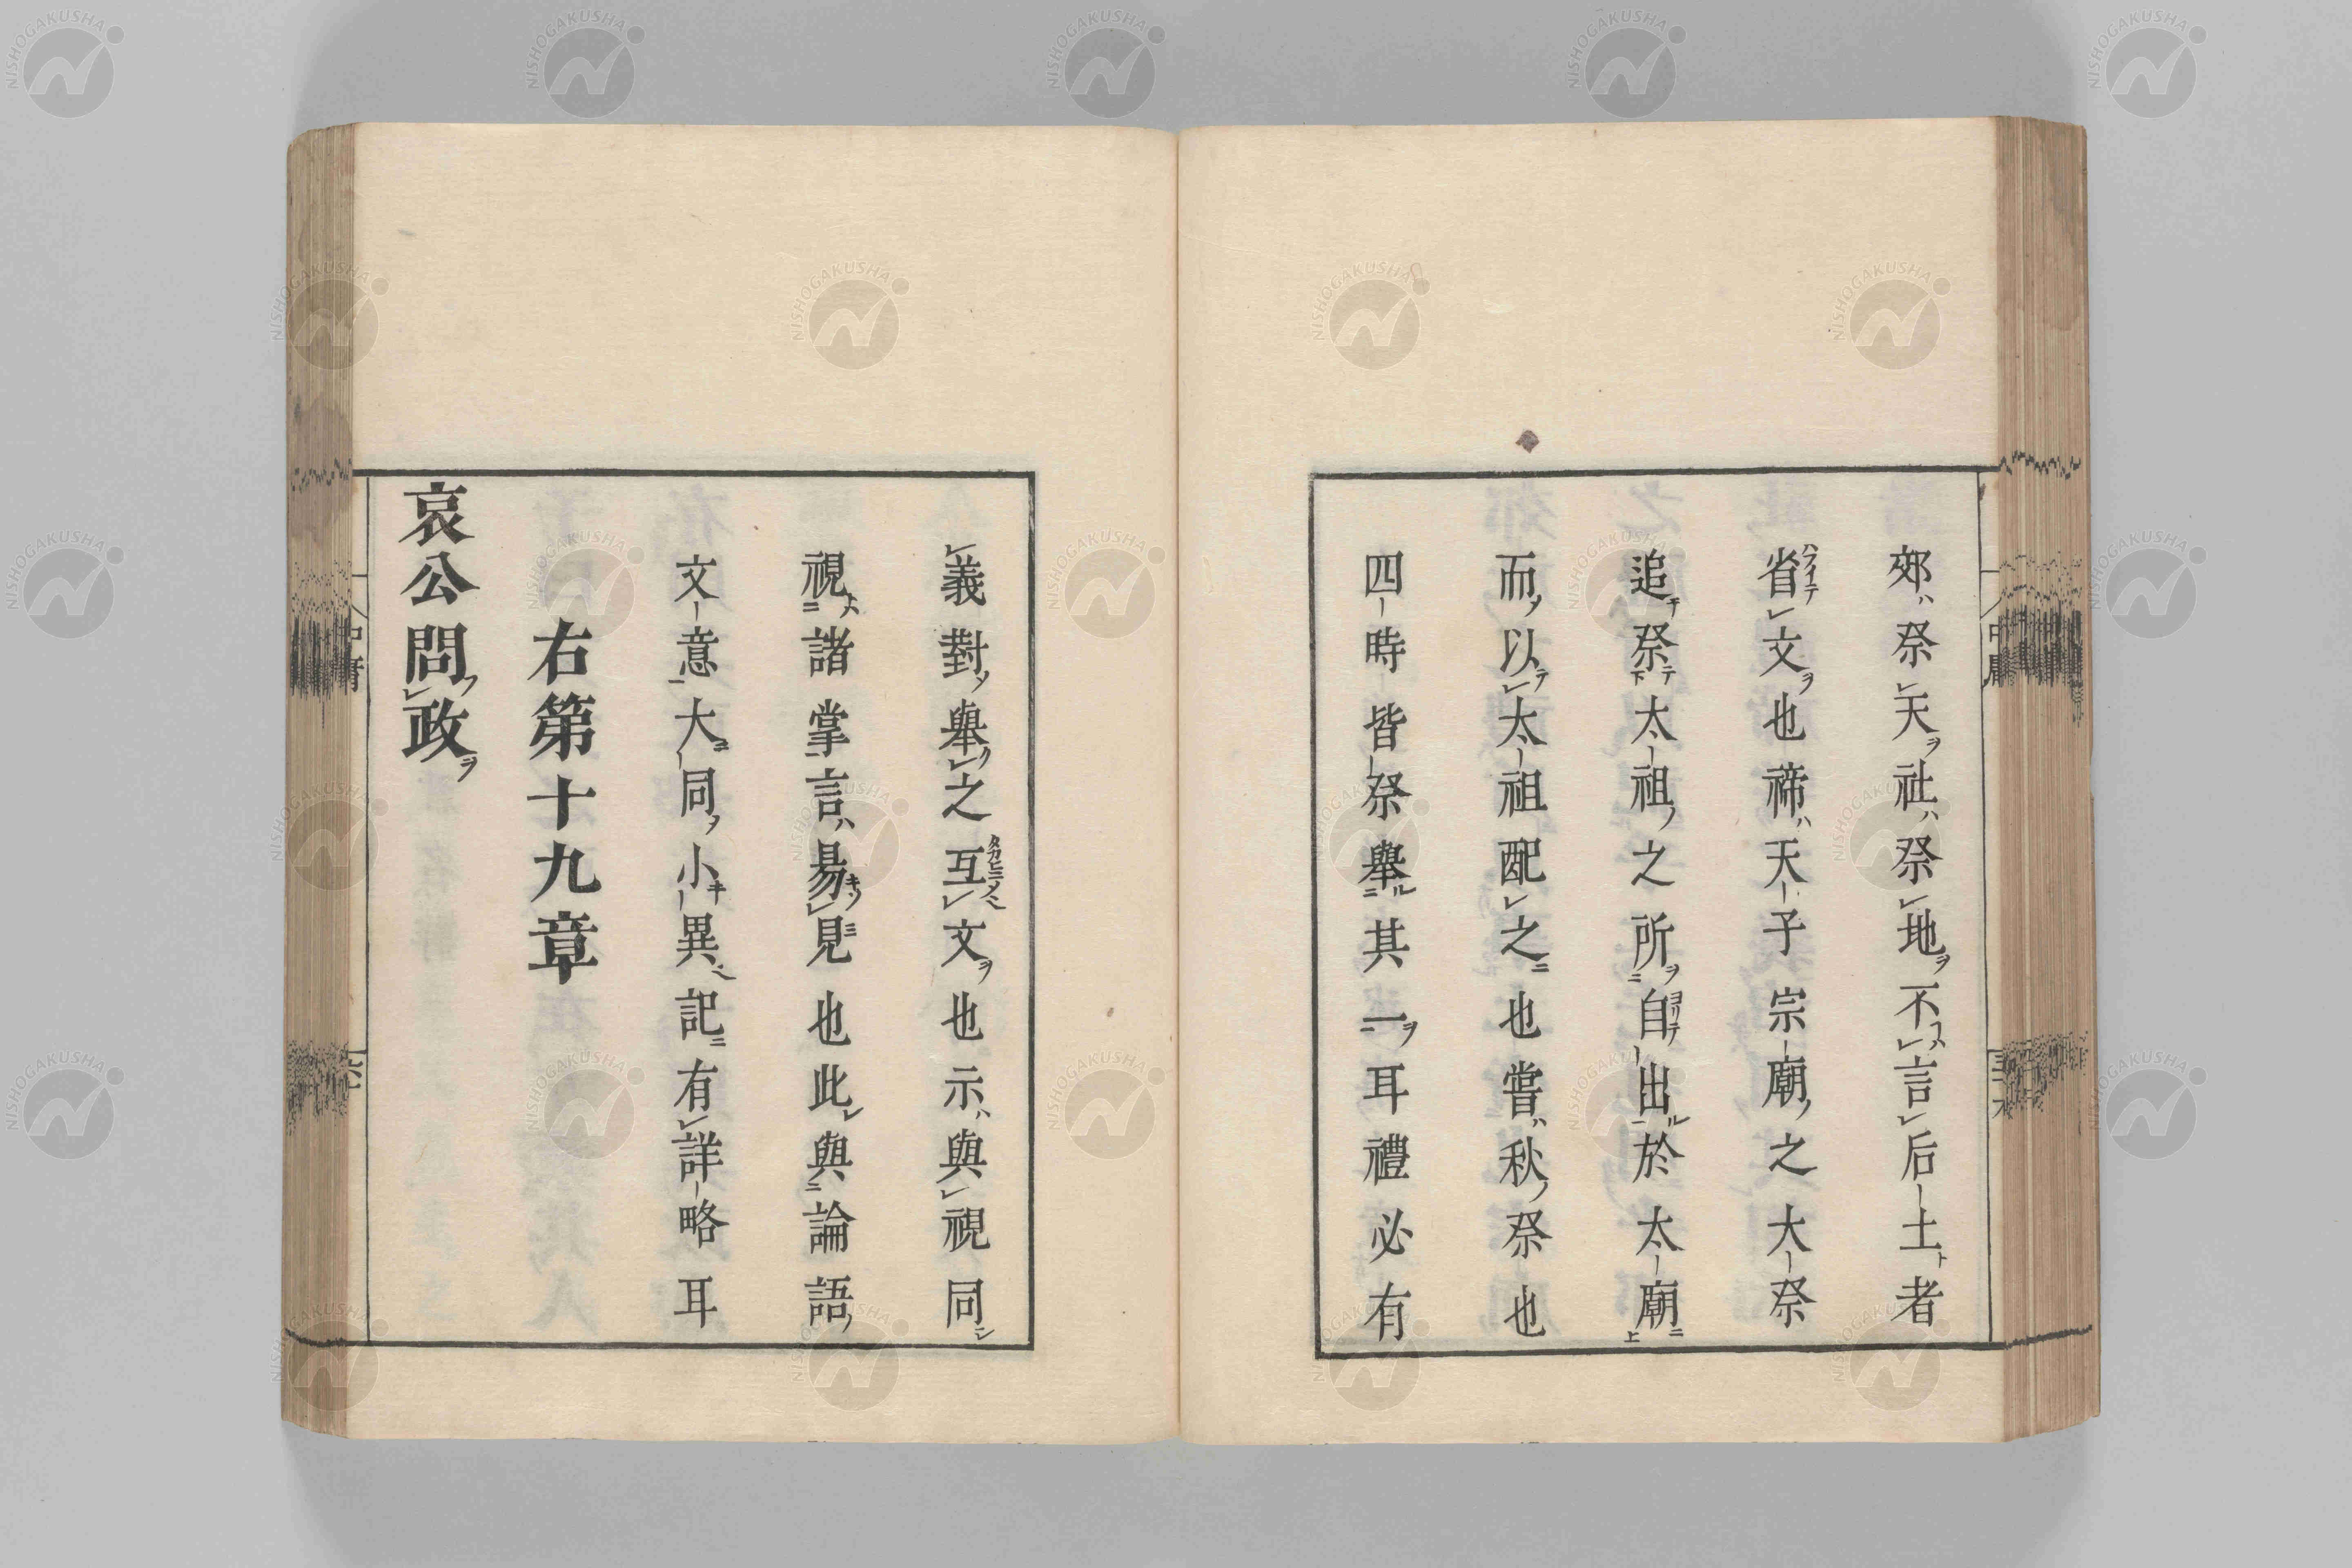 郊祭天社祭地不言后土者
省文也禘天子宗廟之大祭
追祭太祖之所自出於太廟
而以太祖配之也嘗秋祭也
四時皆祭舉其一耳禮必有
義對舉之互文也示與視同
視諸掌言易見也此與論語
文意大同小異記有詳略耳
右第十九章
哀公問政